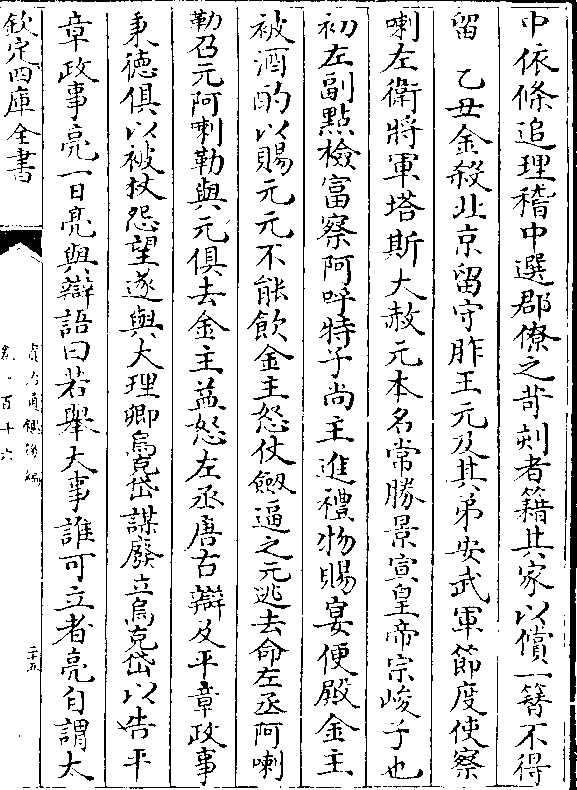 中依條追理稽中選郡僚之苛刻者籍其家以償一簪不得
留　乙丑金殺北京留守胙王元及其弟安武軍節度使察
喇左衛將軍塔斯大赦元本名常勝景宣皇帝宗峻子也
初左副點檢富察阿哷特子尚主進禮物賜宴便殿金主
被酒酌以賜元元不能飲金主怒仗劒逼之元逃去命左丞阿喇
勒召元阿喇勒與元俱去金主益怒左丞唐古辯及平章政事
秉德俱以被杖怨望遂與大理卿烏克岱謀廢立烏克岱以告平
章政事亮一日亮與辯語曰若舉大事誰可立者亮自謂太
欽定四庫全書
資治通鑑後編
卷一百十六
二十五